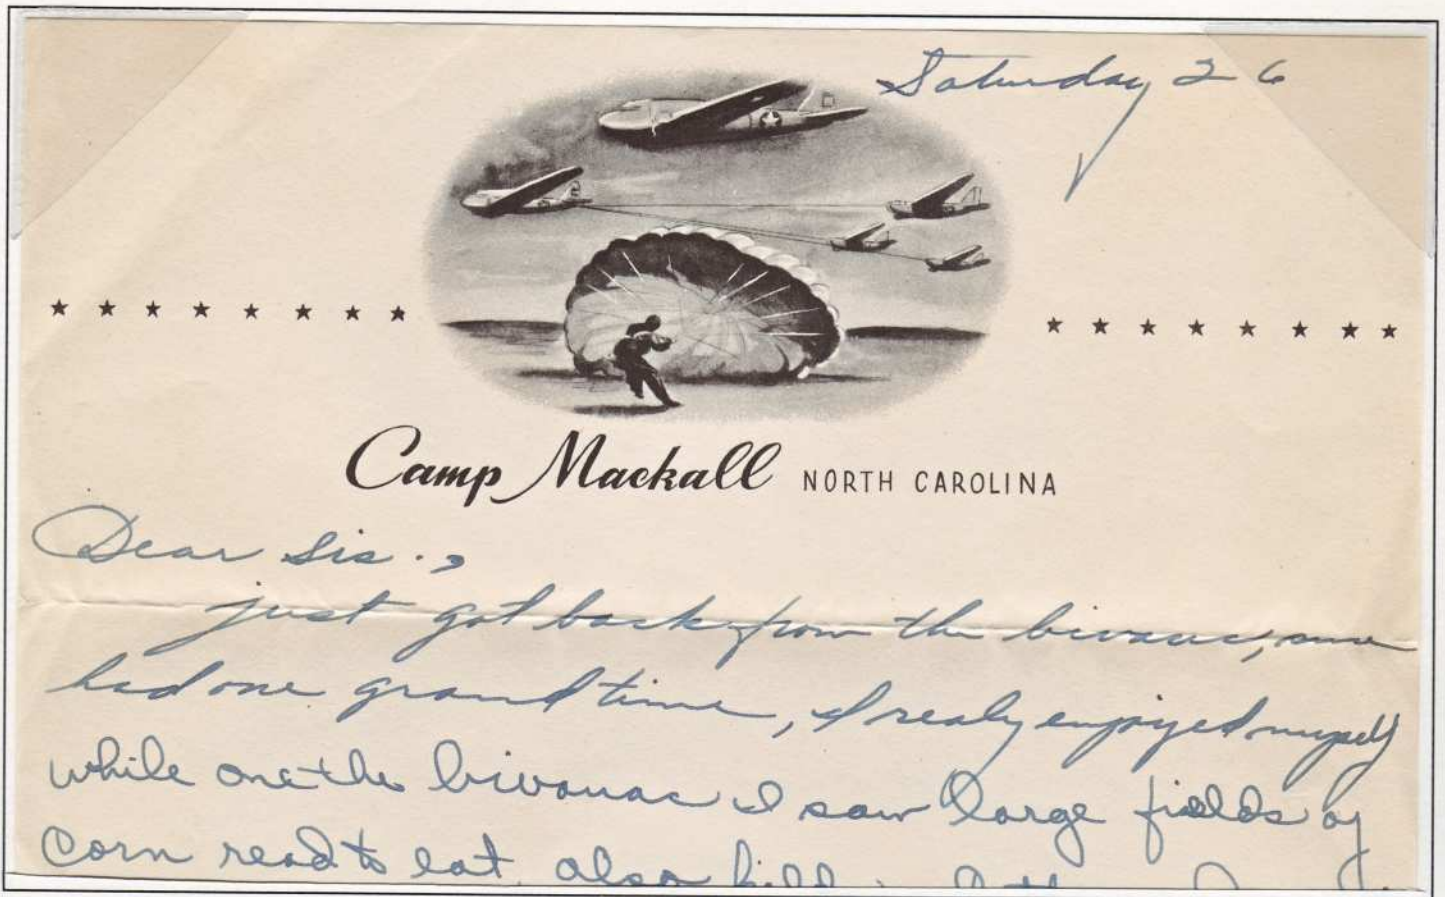 Saturday 26
Camp Mackall NORTH CAROLINA
Dear Sis.,
just got back from the bivouac, sure
had one grand time, I realy enjoyed myself
while one the bivouac I saw large fields of
Corn read to eat, also